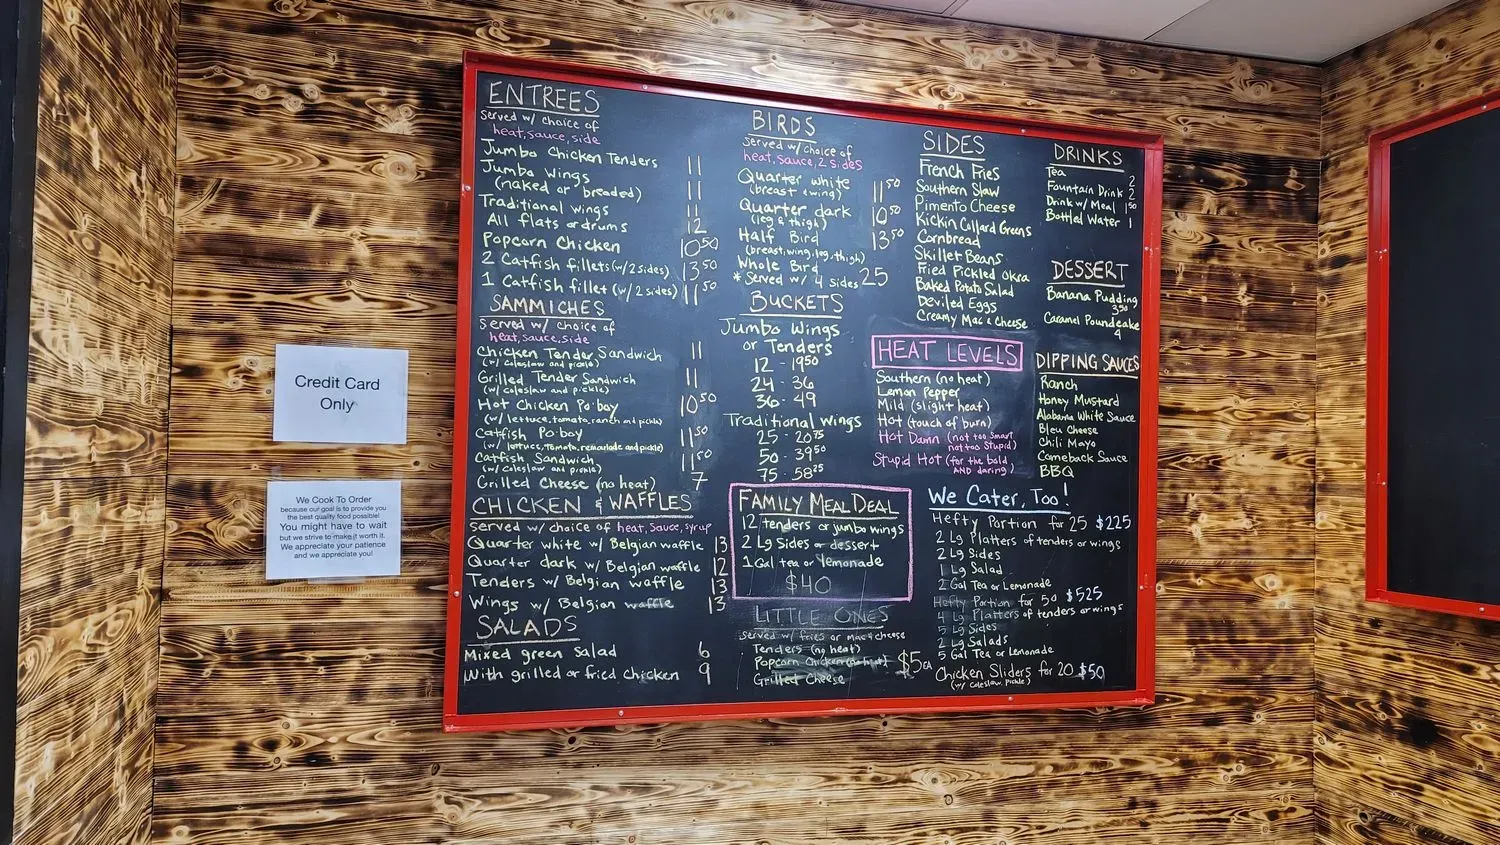 Credit Card
Only
We Cook To Order
because our goal is to provide you
the best quality food possible!
You might have to wait
but we strive to make it worth it.
We appreciate your patience
and we appreciate you!
ENTREES
served w/ choice of
heat, sauce, side
Jumbo Chicken Tenders 11
Jumbo Wings 11
(naked or breaded)
Traditional wings 11
All flats or drums 12
Popcorn Chicken 10.50
2 Catfish fillets (w/ 2 sides) 13.50
1 Catfish fillet (w/ 2 sides) 11.50
SAMMICHES
served w/ choice of
heat, sauce, side
Chicken Tender Sandwich 11
(w/ coleslaw and pickle)
Grilled Tender Sandwich 11
(w/ coleslaw and pickle)
Hot Chicken Po'boy 10.50
(w/ lettuce, tomato, ranch and pickle)
Catfish Po'boy 11.50
(w/ lettuce, tomato, remoulade and pickle)
Catfish Sandwich 11.50
(w/ coleslaw and pickle)
Grilled Cheese (no heat) 7
CHICKEN & WAFFLES
served w/ choice of heat, sauce, syrup
Quarter white w/ Belgian waffle 13
Quarter dark w/ Belgian waffle 12
Tenders w/ Belgian waffle 13
Wings w/ Belgian waffle 13
SALADS
Mixed green Salad 6
With grilled or fried chicken 9
BIRDS
served w/ choice of
heat, sauce, 2 sides
Quarter white 11.50
(breast & wing)
Quarter dark 10.50
(leg & thigh)
Half Bird 13.50
(breast, wing, leg, thigh)
Whole Bird 25
* Served w/ 4 sides
BUCKETS
Jumbo Wings
or Tenders
12 - 19.50
24 - 36
36 - 49
Traditional Wings
25 - 20.75
50 - 39.50
75 - 58.25
FAMILY MEAL DEAL
12 tenders or jumbo wings
2 Lg Sides or dessert
1 Gal tea or lemonade
$40
LITTLE ONES
served w/ fries or mac & cheese
Tenders (no heat)
Popcorn Chicken (no heat) $5 EA
Grilled Cheese
SIDES
French Fries
Southern Slaw
Pimento Cheese
Kickin Collard Greens
Cornbread
Skillet Beans
Fried Pickled Okra
Baked Potato Salad
Deviled Eggs
Creamy Mac & Cheese
HEAT LEVELS
Southern (no heat)
Lemon Pepper
Mild (slight heat)
Hot (touch of burn)
Hot Damn (not too smart
not too stupid)
Stupid Hot (for the bold
AND daring)
DRINKS
Tea 2
Fountain Drink 2
Drink w/ Meal 1.50
Bottled Water 1
DESSERT
Banana Pudding
3.50
Caramel Poundcake
4
DIPPING SAUCES
Ranch
Honey Mustard
Alabama White Sauce
Bleu Cheese
Chili Mayo
Comeback Sauce
BBQ
We Cater, Too!
Hefty Portion for 25 $225
2 Lg Platters of tenders or wings
2 Lg Sides
1 Lg Salad
2 Gal Tea or Lemonade
Hefty Portion for 50 $525
4 Lg Platters of tenders or wings
5 Lg Sides
2 Lg Salads
5 Gal Tea or Lemonade
Chicken Sliders for 20 $50
(w/ coleslaw, pickle)